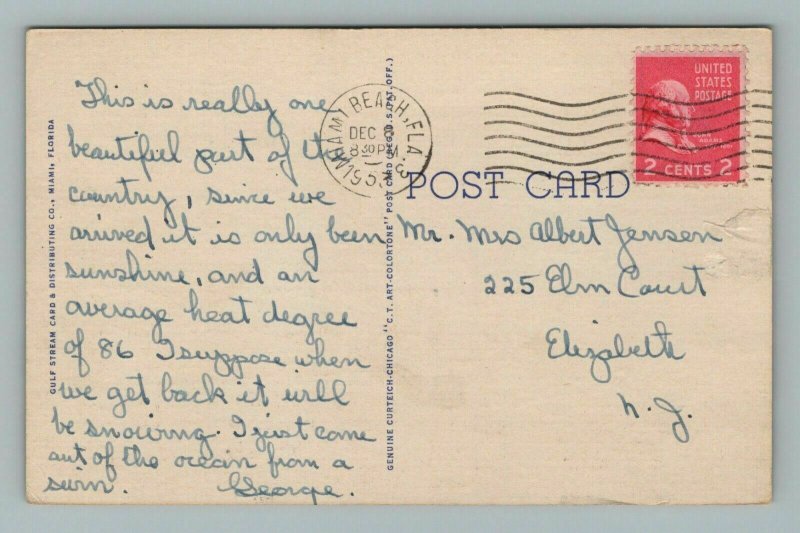 This is really one
beautiful part of the
country, since we
arrived it is only been
sunshine, and an
average heat degree
of 86 I suppose when
we get back it will
be snowing. I just came
out of the ocean from a
swim. George.
GULF STREAM CARD & DISTRIBUTING CO., MIAMI, FLORIDA
GENUINE CURTEICH-CHICAGO "C.T. ART-COLORTONE" POST CARD (REG. U.S. PAT. OFF.)
MIAMI BEACH, FLA. 3
DEC
8 30 PM
195
UNITED
STATES
POSTAGE
JOHN
ADAMS
2 CENTS 2
POST CARD
Mr. Mrs Albert Jensen
225 Elm Court
Elizabeth
N.J.